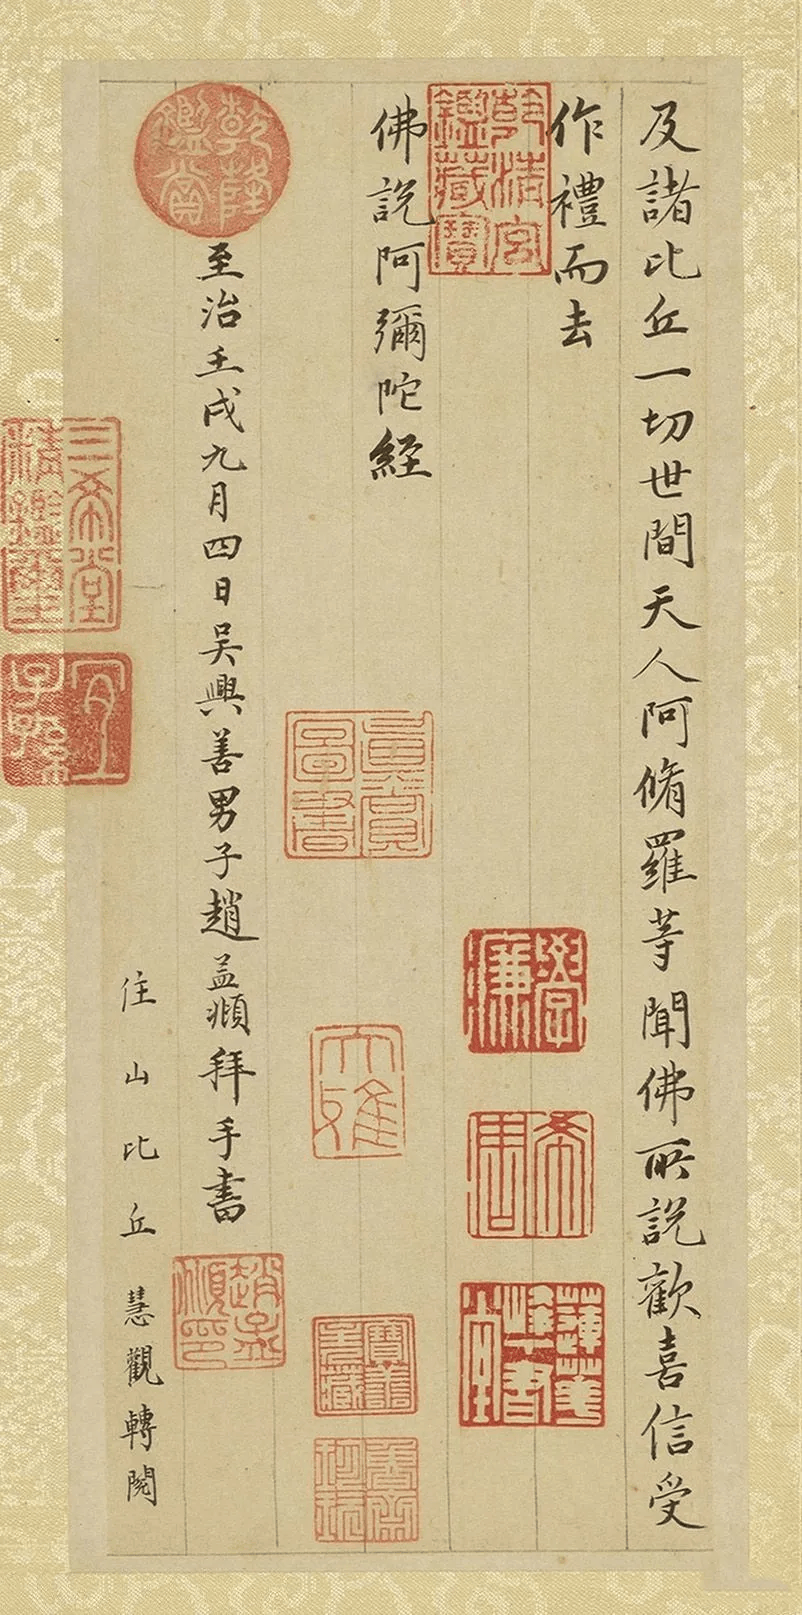 及諸比丘一切世間天人阿脩羅等聞佛所說歡喜信受
作禮而去
佛說阿彌陀經
至治壬戌九月四日吳興善男子趙孟頫拜手書
住山比丘慧觀轉閱
乾隆鑑賞
乾清宮鑑藏寶
三希堂精鑑璽
宜子孫
真賞圖書
大雅
趙孟頫印